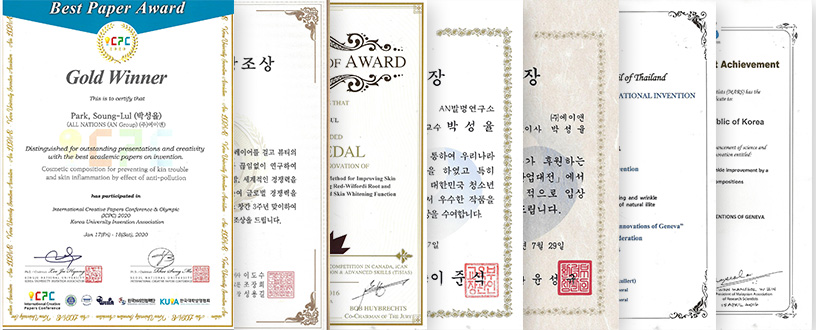 Best Paper Award
CPC
Gold Winner
This is to certify that
Park, Soung-Lul (박성율)
(ALL NATIONS (AN Group) (주)에이앤)
Distinguished for outstanding presentations and creativity
with the best academic papers on invention.
Cosmetic composition for preventing of kin trouble
and skin inflammation by effect of anti-pollution
has participated in
International Creative Papers Conference & Olympic
(ICPC) 2020
Korea University Invention Association
Jan 17(Fri) - 18(Sat), 2020
CPC
International Creative
Papers Conference
KUIA 한국대학발명협회
조상
레이어를 걸고 뷰티의
끊임없이 연구하여
세계적인 경쟁력을
여 글로벌 경쟁력을
창간 3주년 맞이하여
조상을 드립니다.
이도수
조장희
OF AWARD
THAT
UL
DED
EDAL
NOVATION OF
Method for Improving Skin
ng Red-Wilfordi Root and
d Skin Whitening Function
COMPETITION IN CANADA, ICAN
& ADVANCED SKILLS (TISIAS)
2016
ROB HUYBRECHTS
CO-CHAIRMAN OF THE JURY
장
AN발명연구소
교수 박성율
통하여 우리나라
을 하였고 특히
대한민국 청소년
서 우수한 작품을
을 수여합니다.
7일
이준석
장
(주)에이앤
이사 박성율
가 후원하는
업대전」에서
적으로 입상
드립니다.
7월 29일
윤성
il of Thailand
ATIONAL INVENTION
vention
ing and wrinkle
of natural illite
nnovations of Geneva"
deration
t Achievement
ists (MARS) has the
icate to:
blic of Korea
ancement of science and
ovative entitled:
vide improvement by a
mpositions
ENTIONS OF GENEVA